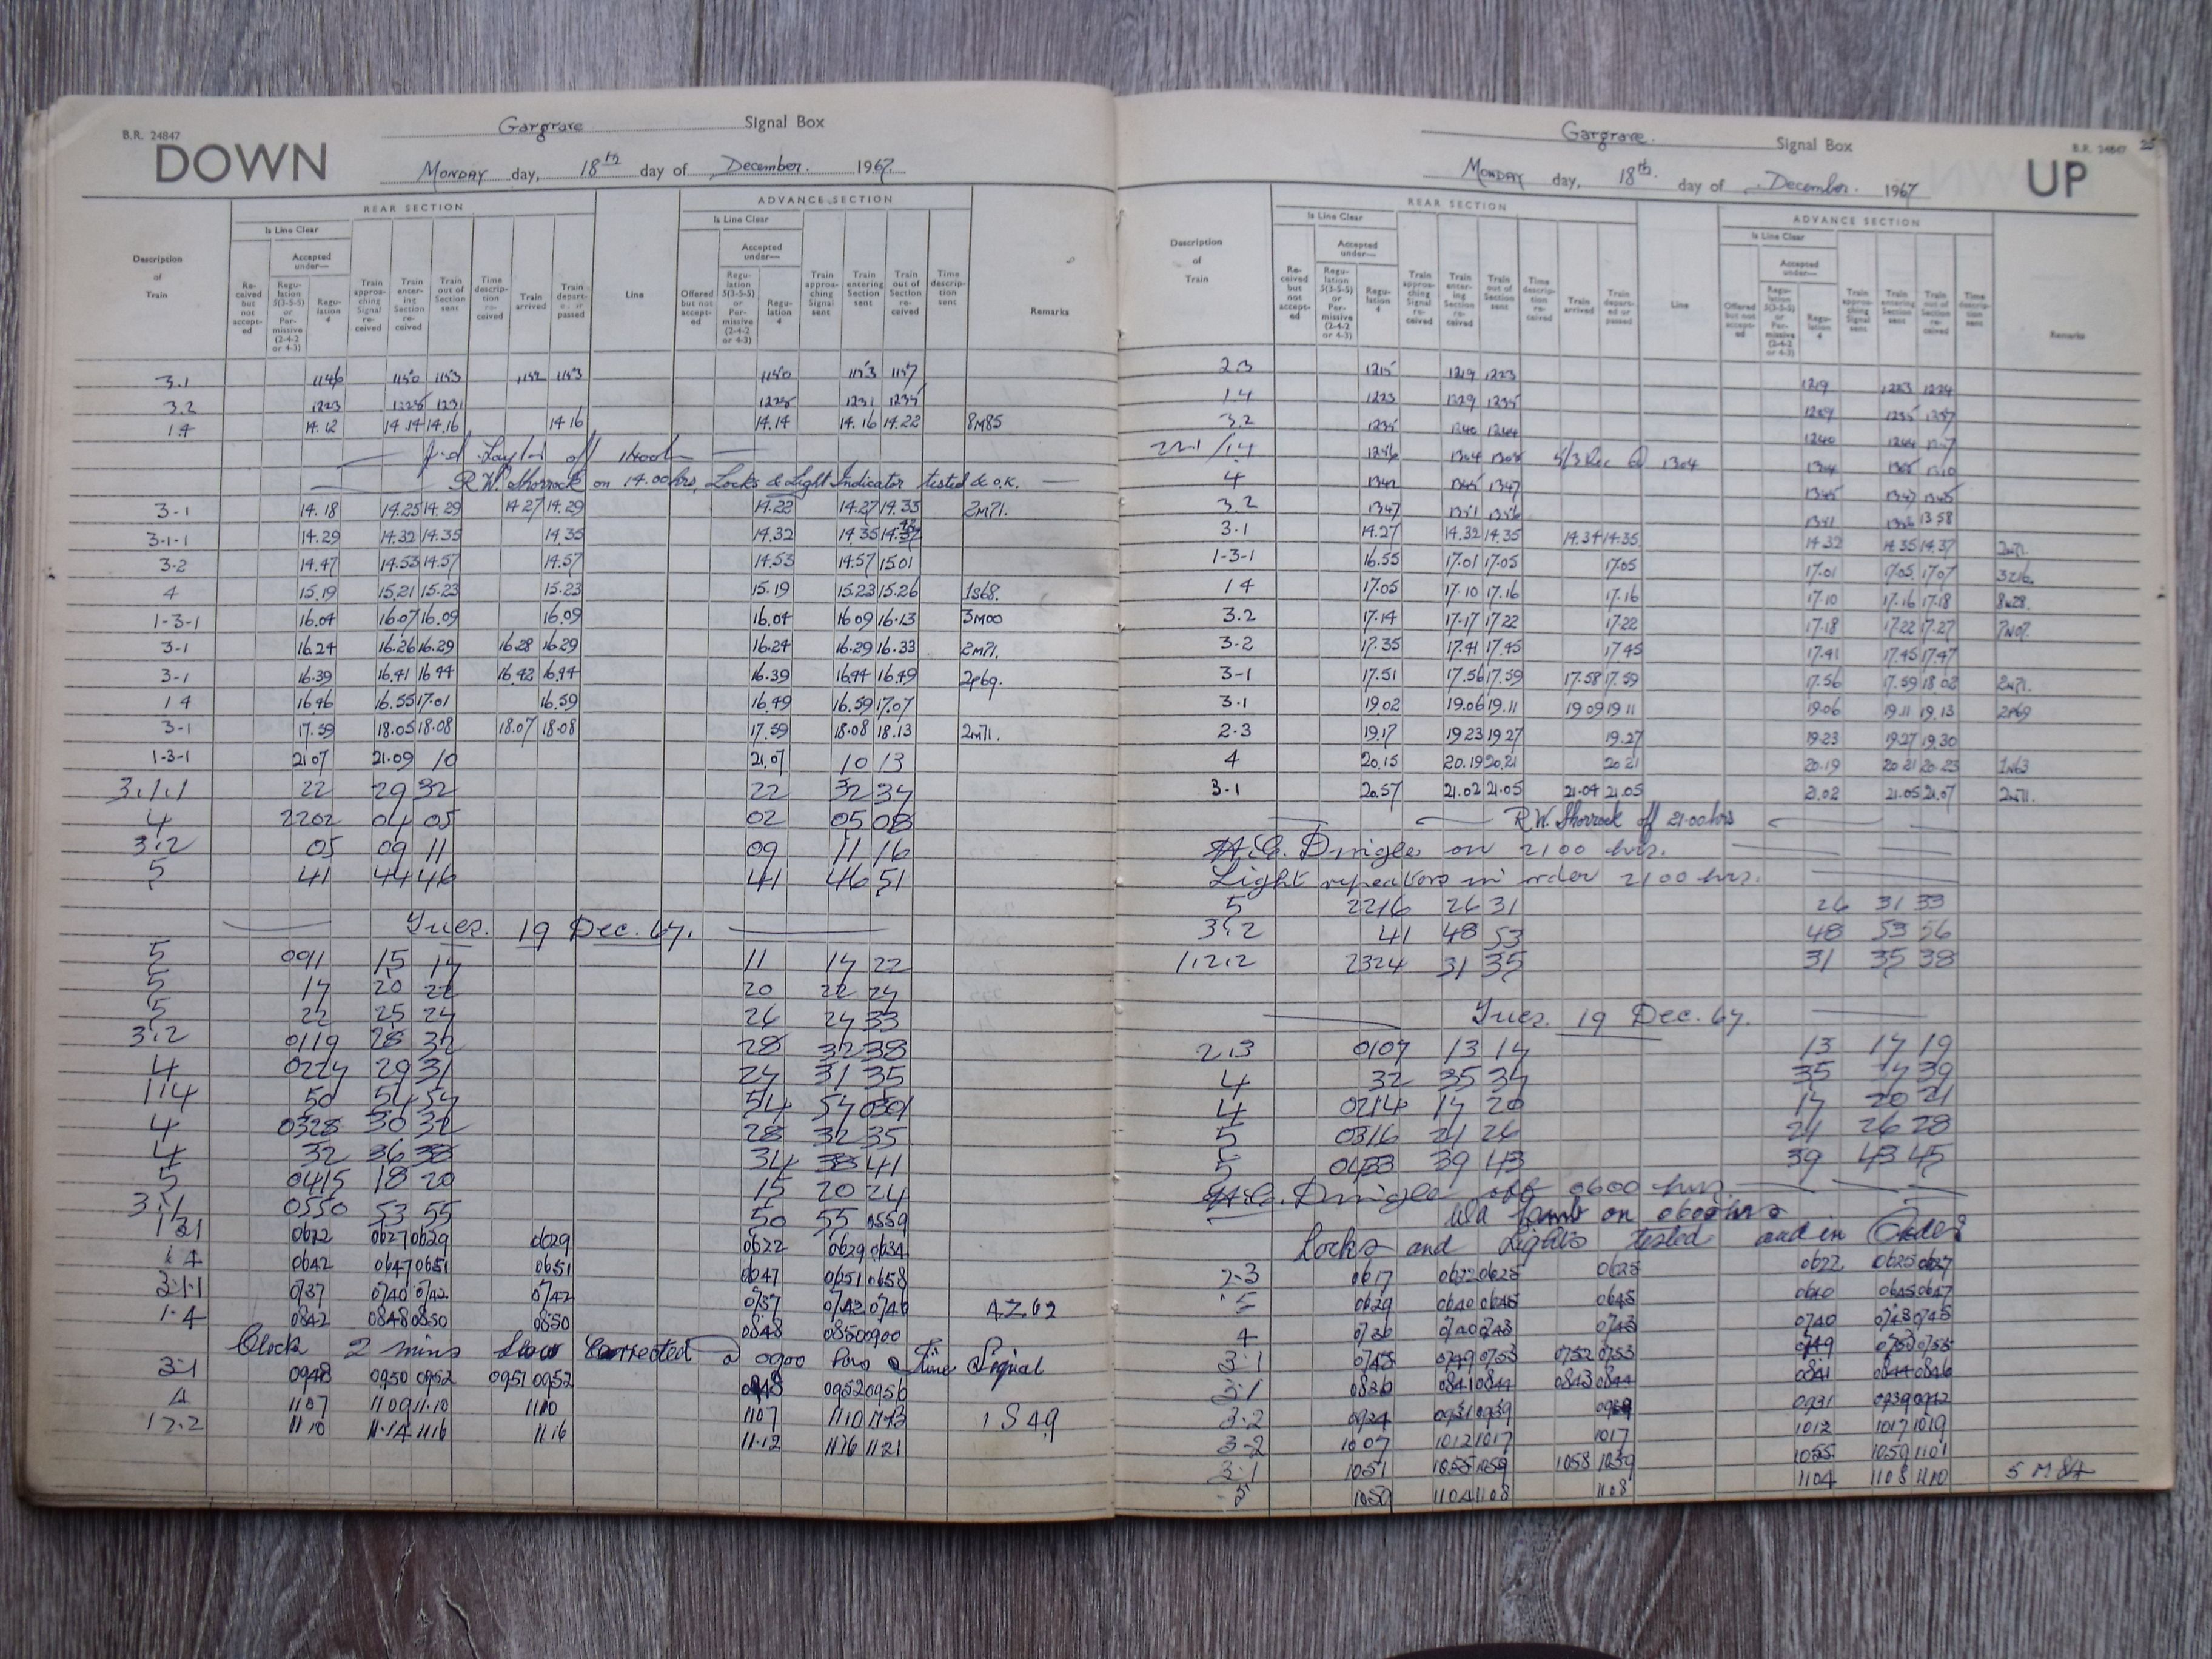 B.R. 24847
DOWN
Gargrave Signal Box
Monday day, 18th day of December. 1967.
REAR SECTION
ADVANCE SECTION
Is Line Clear
Is Line Clear
Accepted under—
Accepted under—
Description of Train
Re-ceived but not accept-ed
Regu-lation 5(3-5-5) or Per-missive (2-4-2 or 4-3)
Regu-lation 4
Train approa-ching Signal re-ceived
Train enter-ing Section re-ceived
Train out of Section sent
Time descrip-tion re-ceived
Train arrived
Train depart-ed or passed
Line
Offered but not accept-ed
Regu-lation 5(3-5-5) or Per-missive (2-4-2 or 4-3)
Regu-lation 4
Train approa-ching Signal sent
Train entering Section sent
Train out of Section re-ceived
Time descrip-tion sent
Remarks
3.1 1146 1150 1153 1152 1153 1150 1153 1157
3.2 1223 1225 1231 1225 1231 1235
1.4 14.12 14.14 14.16 14 16 14.14 14.16 14.22 8M85
off 1400h
R.W. Shorrock on 14.00hrs, Locks & Light Indicator tested & O.K.
3-1 14.18 14.25 14.29 14 27 14.29 14.22 14.27 14.33 2M71.
3-1-1 14.29 14.32 14.35 14.35 14.32 14.35
3-2 14.47 14.53 14.57 14.57 14.53 14.57 15.01
4 15.19 15.21 15.23 15.23 15.19 15.23 15.26 1S68.
1-3-1 16.04 16.07 16.09 16.09 16.04 16 09 16.13 3M00
3-1 16.24 16.26 16.29 16.28 16.29 16.24 16.29 16.33 2M71.
3-1 16.39 16.41 16 44 16.42 16.44 16.39 16.44 16.49 2P69.
1 4 16 46 16.55 17.01 16.59 16.49 16.59 17.07
3-1 17.59 18.05 18.08 18.07 18.08 17.59 18.08 18.13 2M71.
1-3-1 21 07 21.09 10 21.07 10 13
3.1.1 22 29 32 22 32 37
4 2202 04 05 02 05 08
3.2 05 09 11 09 11 16
5 41 44 46 41 46 51
Tues. 19 Dec. 67.
5 0011 15 17 11 17 22
5 17 20 22 20 22 27
5 22 25 27 26 27 33
3.2 0119 28 32 28 32 38
4 0227 29 31 27 31 35
1.4 50 54 57 54 57 0301
4 0328 30 32 28 32 35
4 32 36 38 34 38 41
5 0415 18 20 15 20 24
3.1 0550 53 55 50 55 0559
1 3 1 0622 0627 0629 0629 0622 0629 0634
1 4 0642 0647 0651 0651 0647 0651 0658
3.1.1 0737 0740 0742 0742 0737 0742 0746 4Z62
1.4 0842 0848 0850 0850 0848 0850 0900
Clock 2 mins slow Corrected @ 0900 hrs Time Signal
3.1 0948 0950 0952 0951 0952 0948 0952 0956
4 1107 1109 11.10 1110 1107 1110 1113 1S49
1 2.2 1110 11.14 1116 1116 11.12 1116 1121
25
B.R. 24847
UP
Gargrave. Signal Box
Monday day, 18th. day of December. 1967
REAR SECTION
ADVANCE SECTION
Is Line Clear
Is Line Clear
Accepted under—
Accepted under—
Description of Train
Re-ceived but not accept-ed
Regu-lation 5(3-5-5) or Per-missive (2-4-2 or 4-3)
Regu-lation 4
Train approa-ching Signal re-ceived
Train enter-ing Section re-ceived
Train out of Section sent
Time descrip-tion re-ceived
Train arrived
Train depart-ed or passed
Line
Offered but not accept-ed
Regu-lation 5(3-5-5) or Per-missive (2-4-2 or 4-3)
Regu-lation 4
Train approa-ching Signal sent
Train entering Section sent
Train out of Section re-ceived
Time descrip-tion sent
Remarks
2.3 1215 1219 1223 1219 1223 1224
1.4 1223 1229 1235 1229 1235 1237
3.2 1235 1240 1244 1240 1244 1247
1256 1304 1308 @ 1304 1304 1308 1310
4 1342 1345 1347 1345 1347
3.2 1347 1351 1356 1351 1356 1358
3-1 14.27 14.32 14.35 14.34 14.35. 14 32 14 35 14.37 2M71.
1-3-1 16.55 17.01 17.05 17.05 17.01 17.05 17.07
1 4 17.05 17.10 17.16 17.16 17.10 17.16 17.18
3.2 17.14 17.17 17.22 17.22 17.18 17.22 17.27
3-2 17.35 17.41 17.45 17 45 17.41 17.45 17.47
3-1 17.51 17.56 17.59 17.58 17.59 17.56 17.59 18 02 2M71.
3.1 19.02 19.06 19.11 19 09 19 11 19.06 19.11 19.13 2P69
2.3 19.17 19 23 19 27 19.27 19.23 19.27 19.30
4 20.15 20.19 20.21 20 21 20.19 20 21 20 23 1N63
3-1 20.57 21.02 21.05 21.04 21.05 21.02 21.05 21.07 2M71.
R.W. Shorrock off 21.00hrs
Dringle on 2100 hrs.
Light repeaters in order 2100 hrs.
5 2216 26 31 26 31 33
3.2 41 48 53 48 53 56
1.2.2 2324 31 35 31 35 38
Tues. 19 Dec. 67.
2.3 0107 13 17 13 17 19
4 32 35 37 35 37 39
4 0214 17 20 17 20 21
5 0316 21 26 21 26 28
5 0433 39 43 39 43 45
Dringle off 0600 hrs.
Lamb on 0600hrs
Locks and Lights tested and in Order
2-3 0617 0622 0625 0625 0622 0625 0627
5 0629 0640 0645 0645 0640 0645 0647
4 0736 0740 0743 0743 0740 0743 0745
3.1 0745 0749 0753 0752 0753 0749 0753 0755
3.1 0836 0841 0844 0843 0844 0841 0844 0846
3-2 0924 0931 0939 0931 0939 0942
3-2 1007 1012 1017 1017 1012 1017 1019
3.1 1051 1055 1059 1058 1059 1055 1059 1101
5 1059 1104 1108 1108 1104 1108 1110 5 M 84